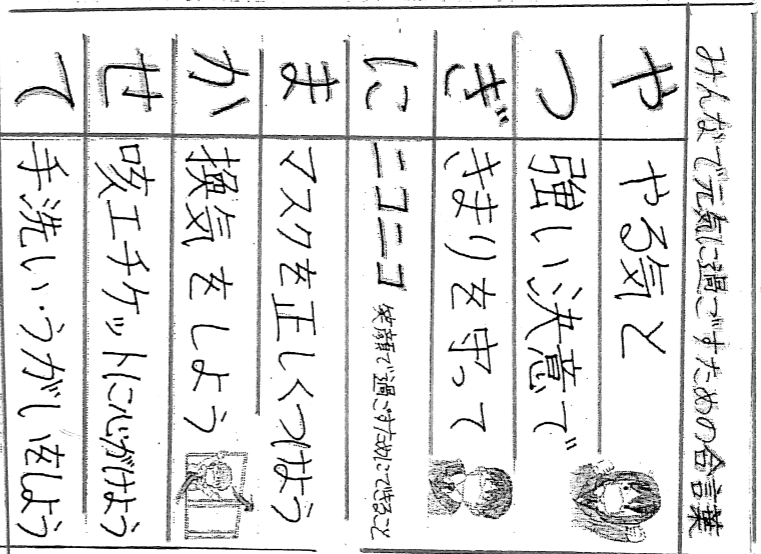 みんなで元気に過ごすための合言葉
や やる気と
つ 強い決意で
ぎ きまりを守って
に ニコニコ 笑顔で過ごすためにできること
ま マスクを正しくつけよう
か 換気をしよう
せ 咳エチケットに心がけよう
て 手洗い・うがいをしよう